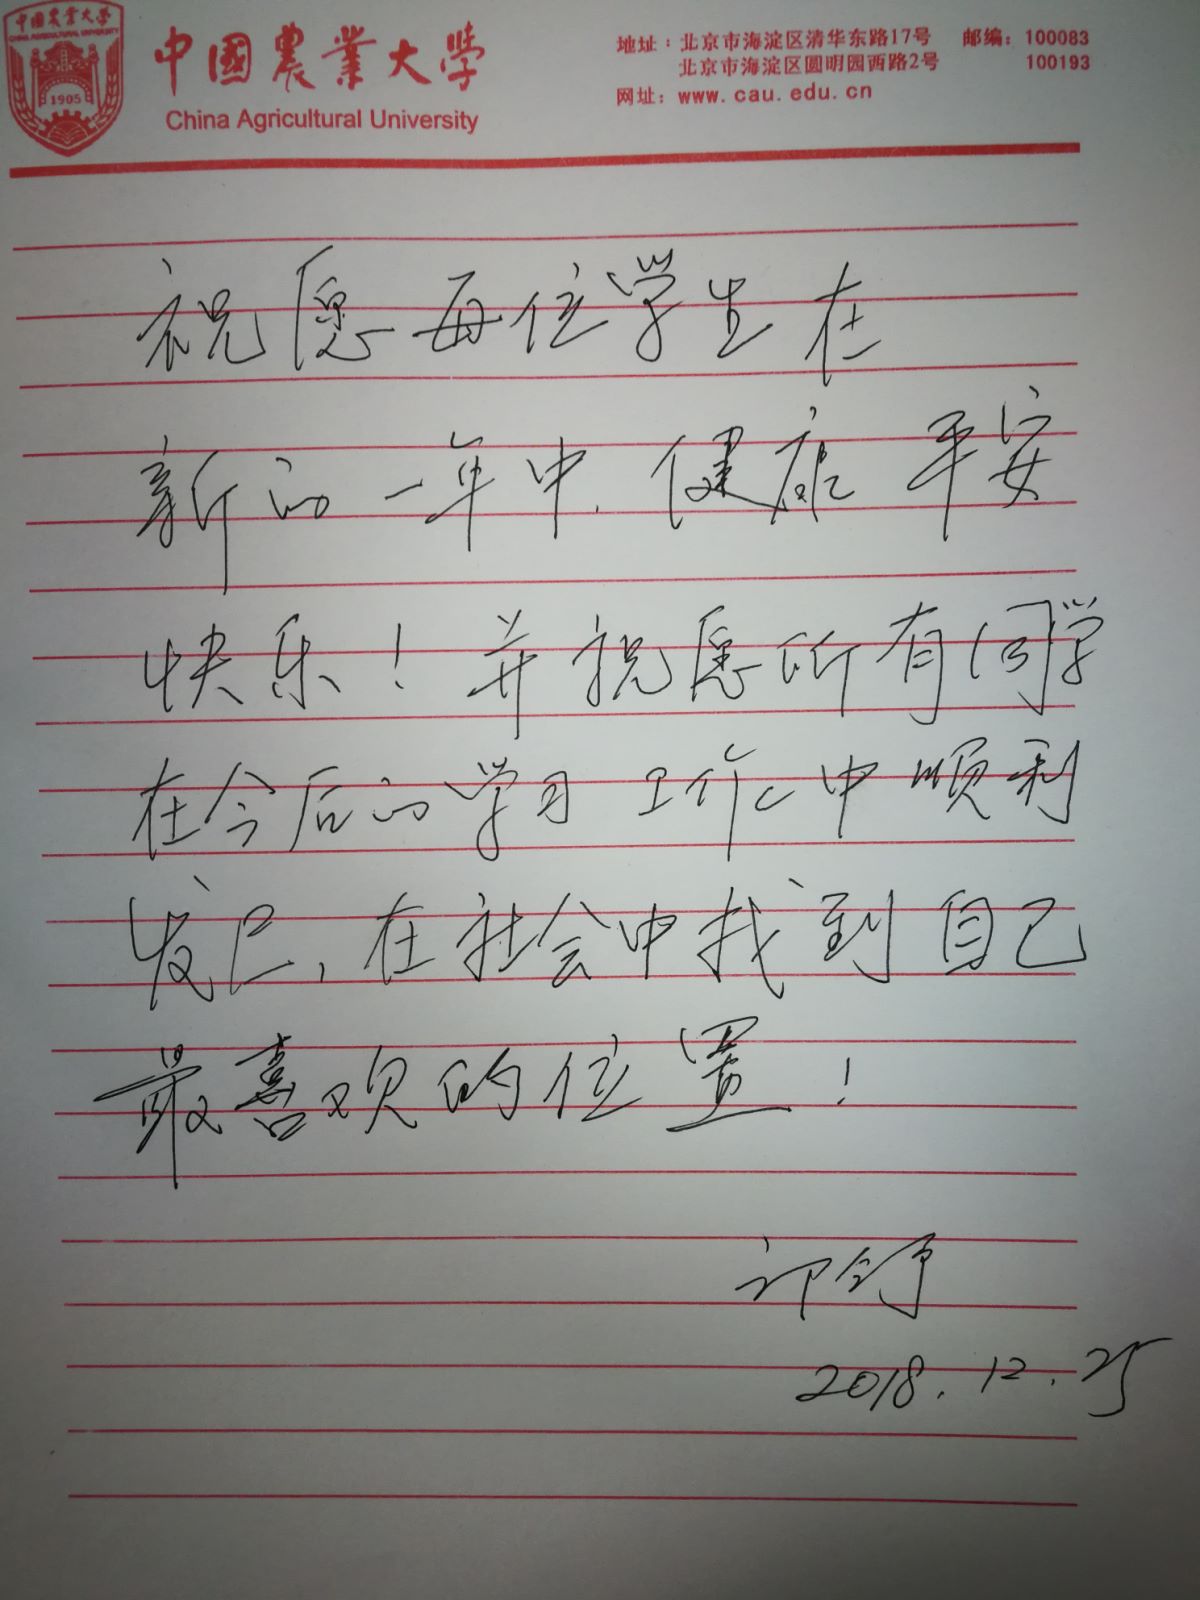 中国农业大学
CHINA AGRICULTURAL UNIVERSITY
1905
中國農業大學
China Agricultural University
地址：北京市海淀区清华东路17号 邮编：100083
北京市海淀区圆明园西路2号 100193
网址：www.cau.edu.cn
祝愿每位学生在
新的一年中，健康 平安
快乐！并祝愿所有同学
在今后的学习 工作中顺利
发展，在社会中找到自己
最喜欢的位置！
2018.12.25